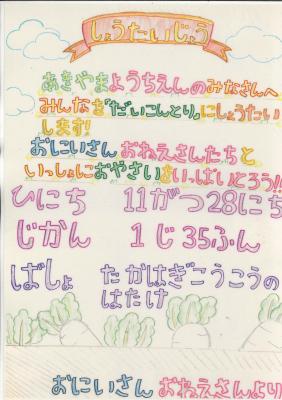 しょうたいじょう
あきやまようちえんのみなさんへ
みんなを『だいこんとり』にしょうたい
します!
おにいさんおねえさんたちと
いっしょにおやさいをいっぱいとろう!!
ひにち 11がつ28にち
じかん 1じ35ふん
ばしょ たかはぎこうこうの
はたけ
おにいさんおねえさんより